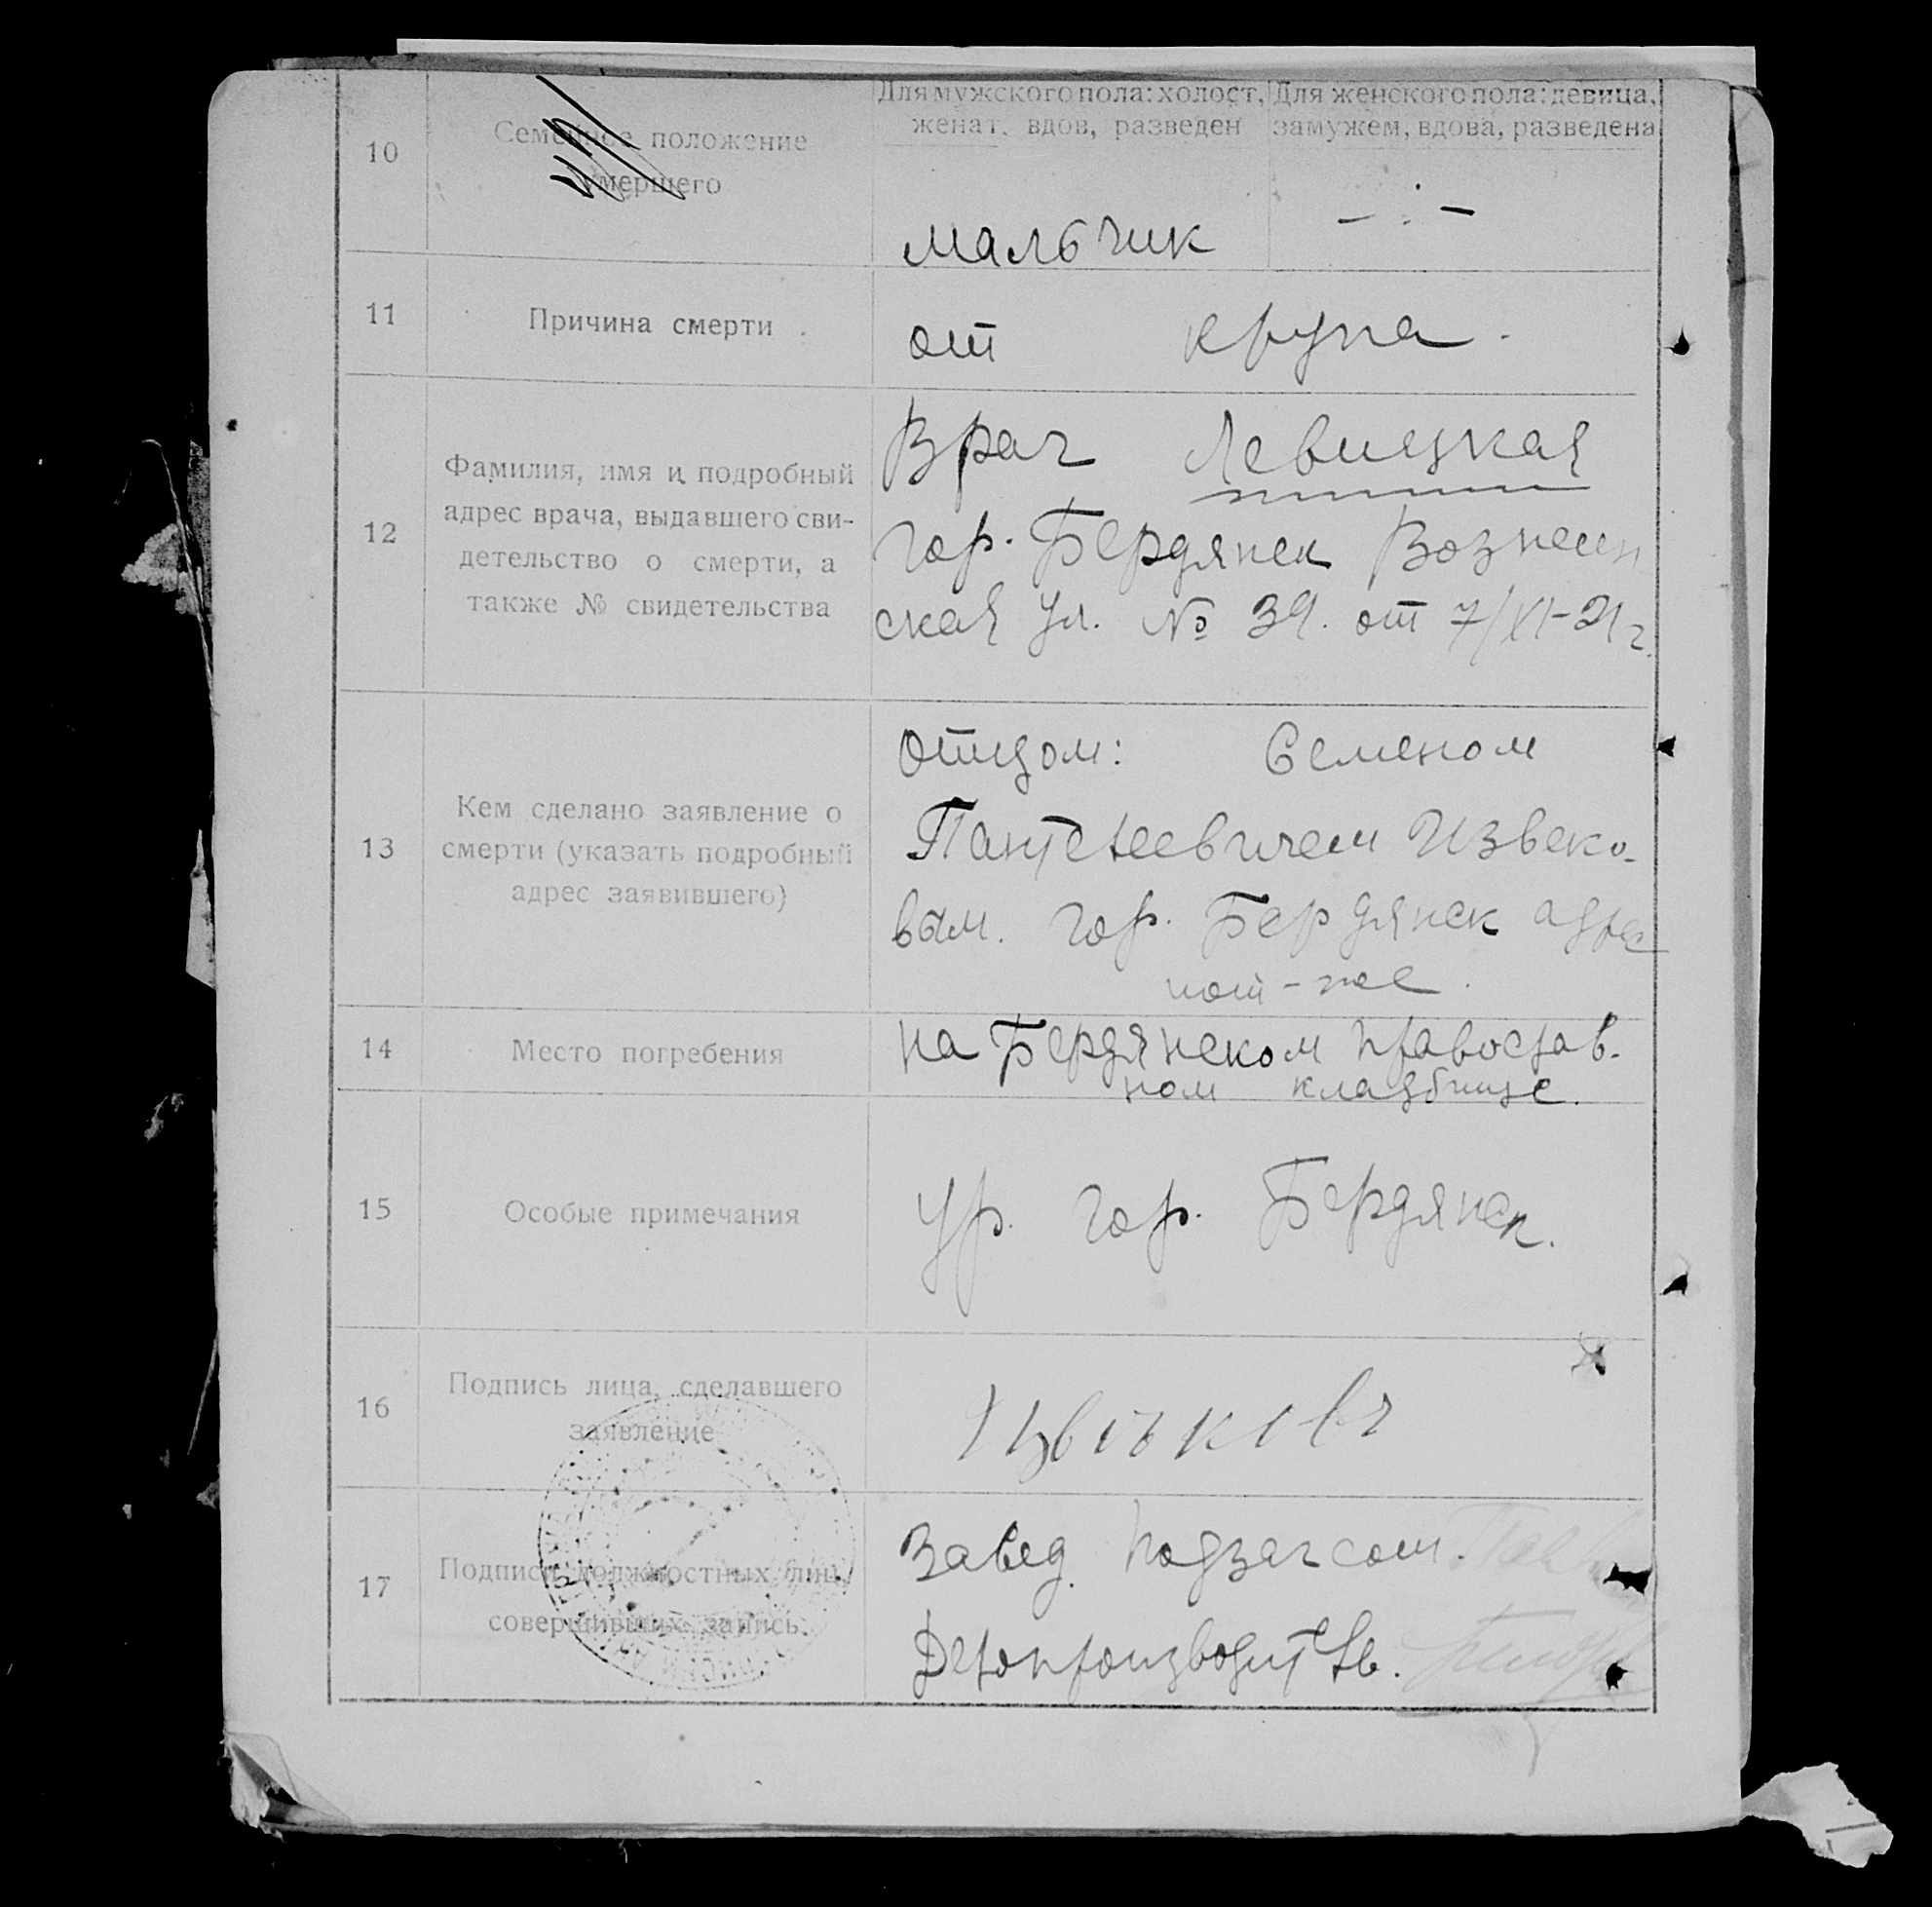 10
Семейное положение
умершего
Для мужского пола: холост,
женат, вдов, разведен
Для женского пола: девица,
замужем, вдова, разведена
мальчик
11
Причина смерти
от крупа.
12
Фамилия, имя и подробный
адрес врача, выдавшего сви-
детельство о смерти, а
также № свидетельства
Врач Левицкая
гор. Бердянск Вознесен
ская ул. № 39. от 7/XI-21 г.
13
Кем сделано заявление о
смерти (указать подробный
адрес заявившего)
Отцом: Семеном
Пантелеевичем Извеко-
вым. гор. Бердянск адрес
тот-же.
14
Место погребения
на Бердянском православ-
ном кладбище.
15
Особые примечания
Ур. гор. Бердянск.
16
Подпись лица, сделавшего
заявление
17
Подписи должностных лиц,
совершивших запись.
Завед. Подзагсом.
Делопроизводитель.